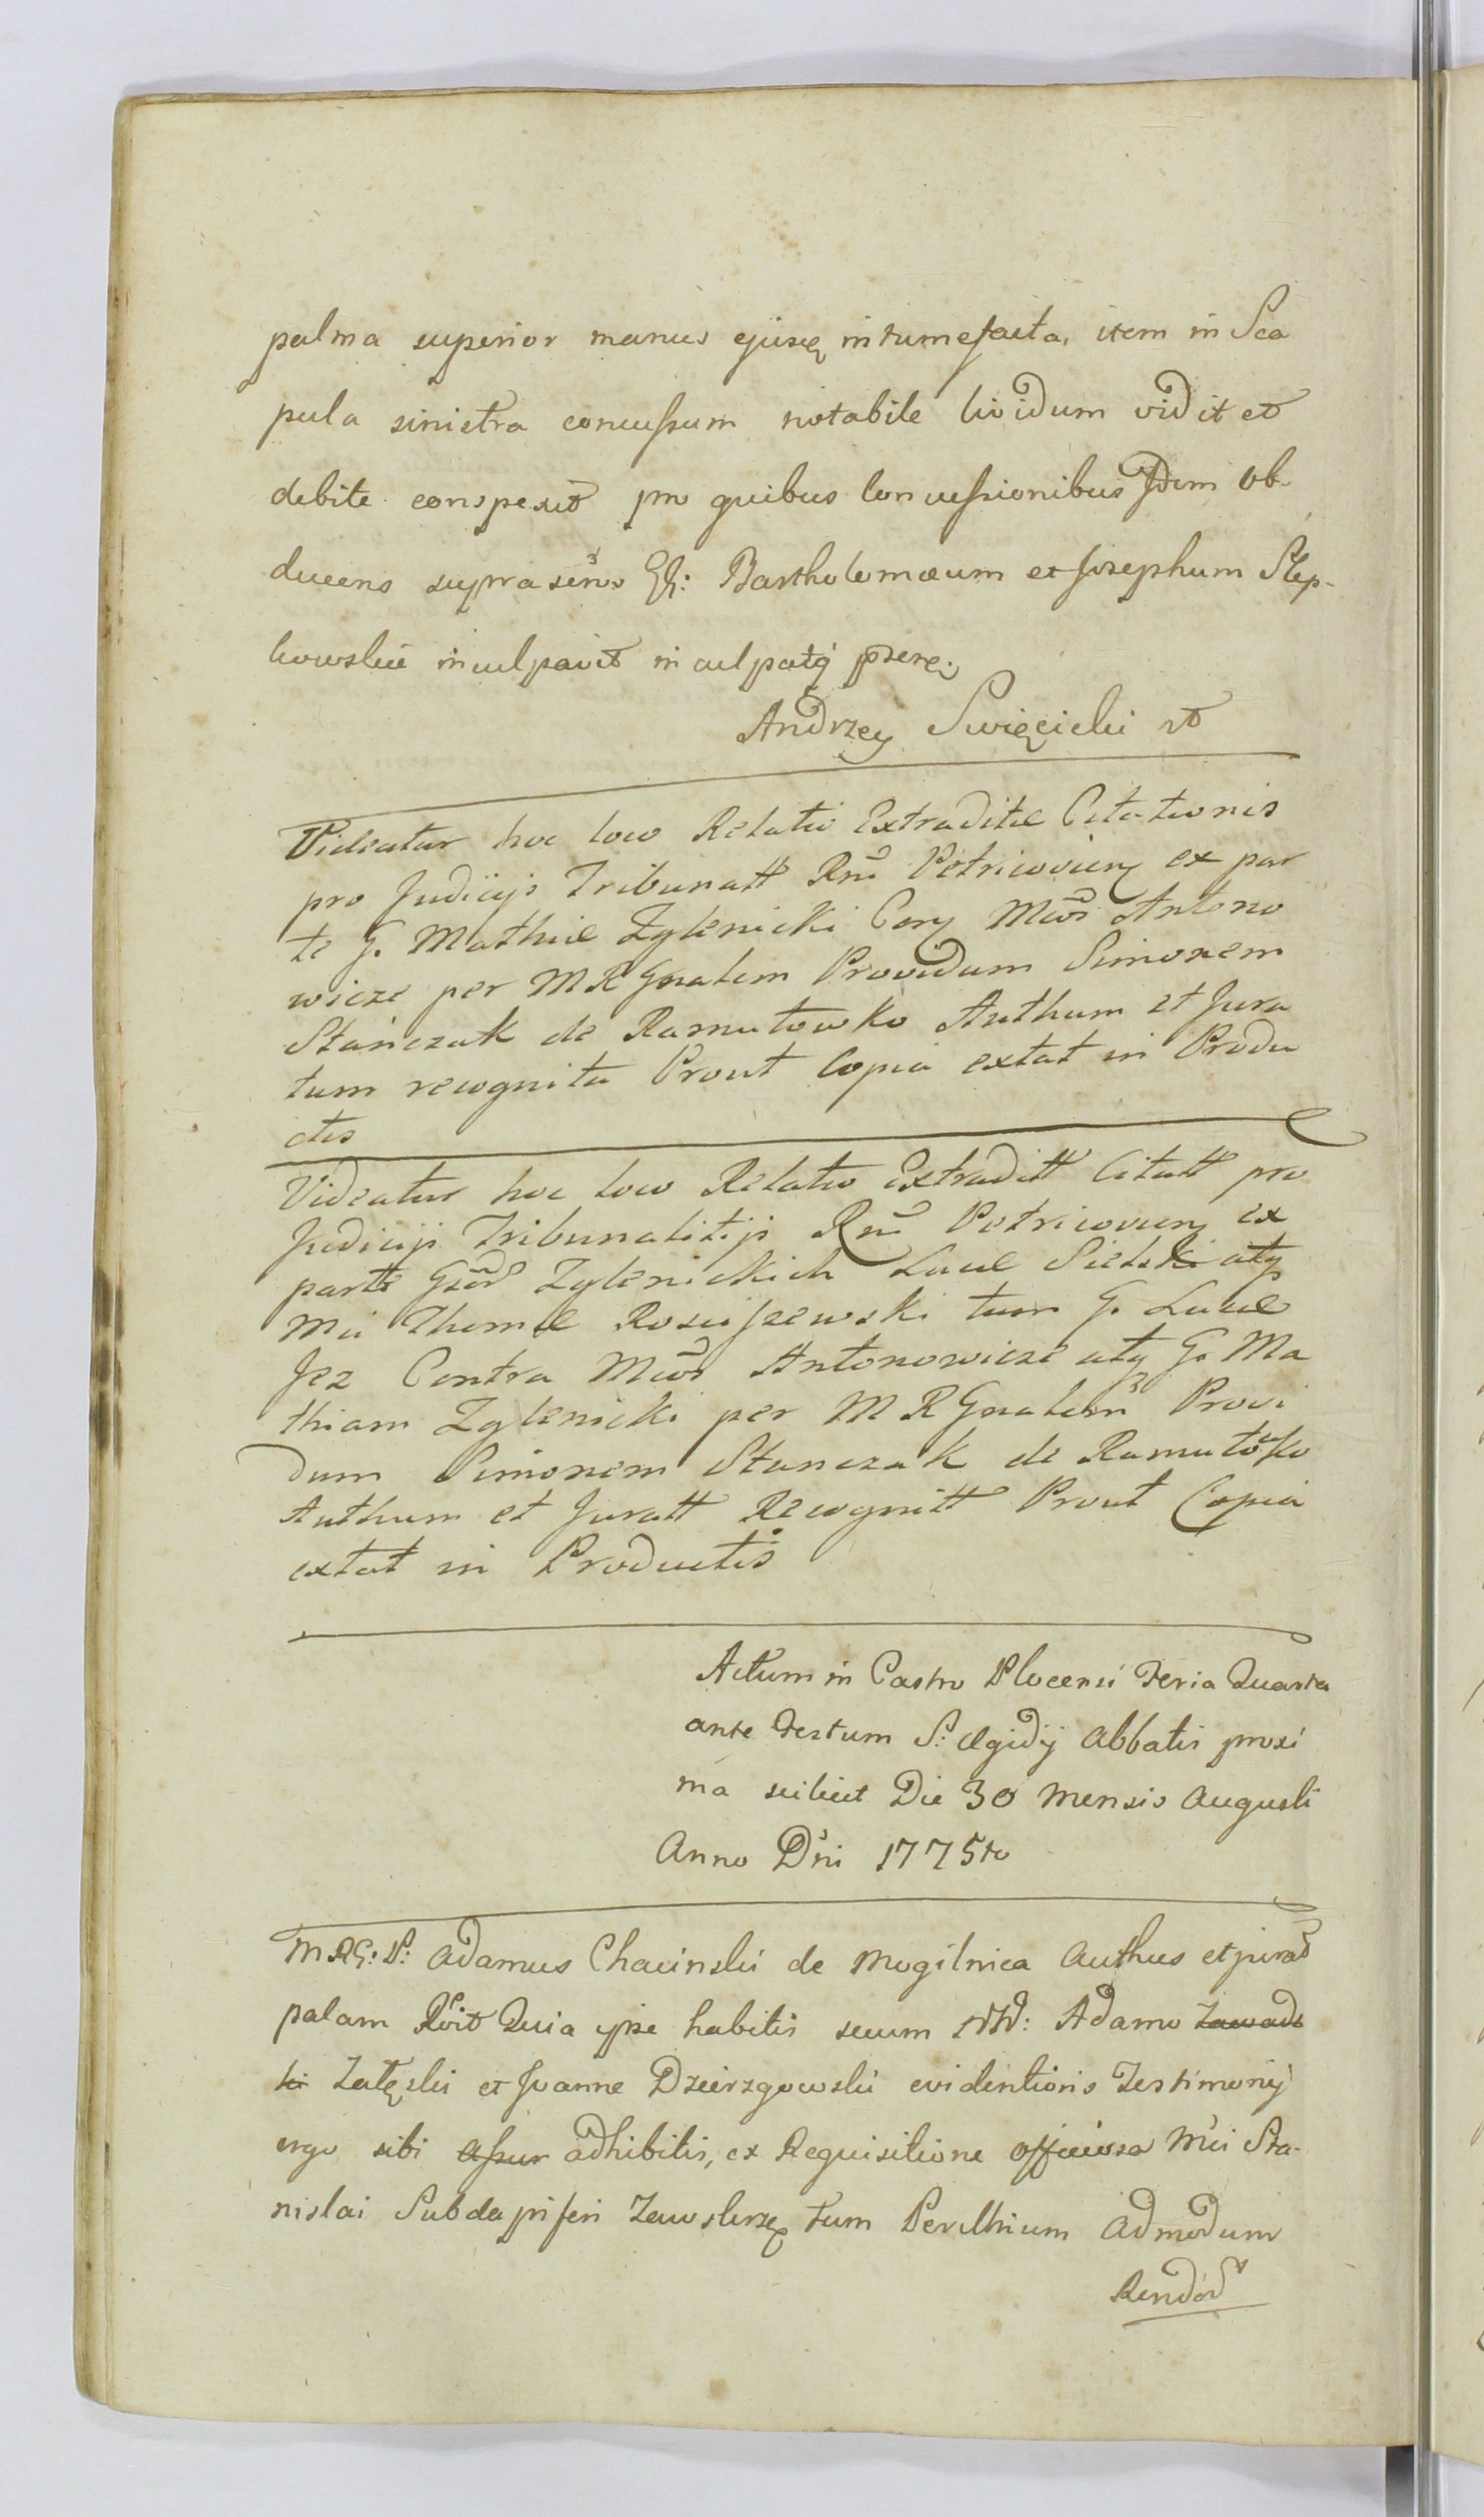 palma superior manus ejusq intumefacta, item in Sca
pula sinistra concussum notabile lividum vidit et
debite conspexit pro quibus Concussionibus Idem Ob-
ducens suprascriptos GG: Bartholomæum et Josephum Slep-
kowskie inculpavit inculpatq prsenę
Andrzey Swięcicki
Videatur hoc loco Relatio Extraditæ Citationis
pro Judicijs Tribunatt Rni Petricovien ex par
te G. Mathiæ Zglenicki Con Mcos Antono
wicze per M R Gnalem Providum Simonem
Stańczak de Ramutowko Authum et Jura
tum recognita Prout Copia extat in Produ
ctis
Videatur hoc loco Relatio Extraditt Citatt pro
Judicijs Tribunalitijs Rni Petricovien ex
parte Gsor Zglenickich Lucæ Sielski atq
Mci Thomæ Rosciszewski tum G. Lucæ
Jez Contra Mcos Antonowicze atq G. Ma
thiam Zglenicki per M R Gnalem Provi
dum Simonem Stanczak de Ramutowko
Authum et Juratt Recognitt Prout Copia
extat in Productis
Actum in Castro Plocensi Feria Quarta
ante Festum S: Ægidij Abbatis proxi
ma scilicet Die 30 Mensis Augusti
Anno Dni 1775to
MRG: P: Adamus Chacinski de Mogilnica Authus et jurat
palam Rvit Quia ipse habitis secum NN: Adamo Zawads
ki Załęski et Joanne Dzierzgowski evidentioris Testimonij
ergo sibi assur adhibitis, ex Requisitione officiosa Mci Sta-
nislai Subdapiferi Zawskrzę tum Perillrium Admodum
Rendor